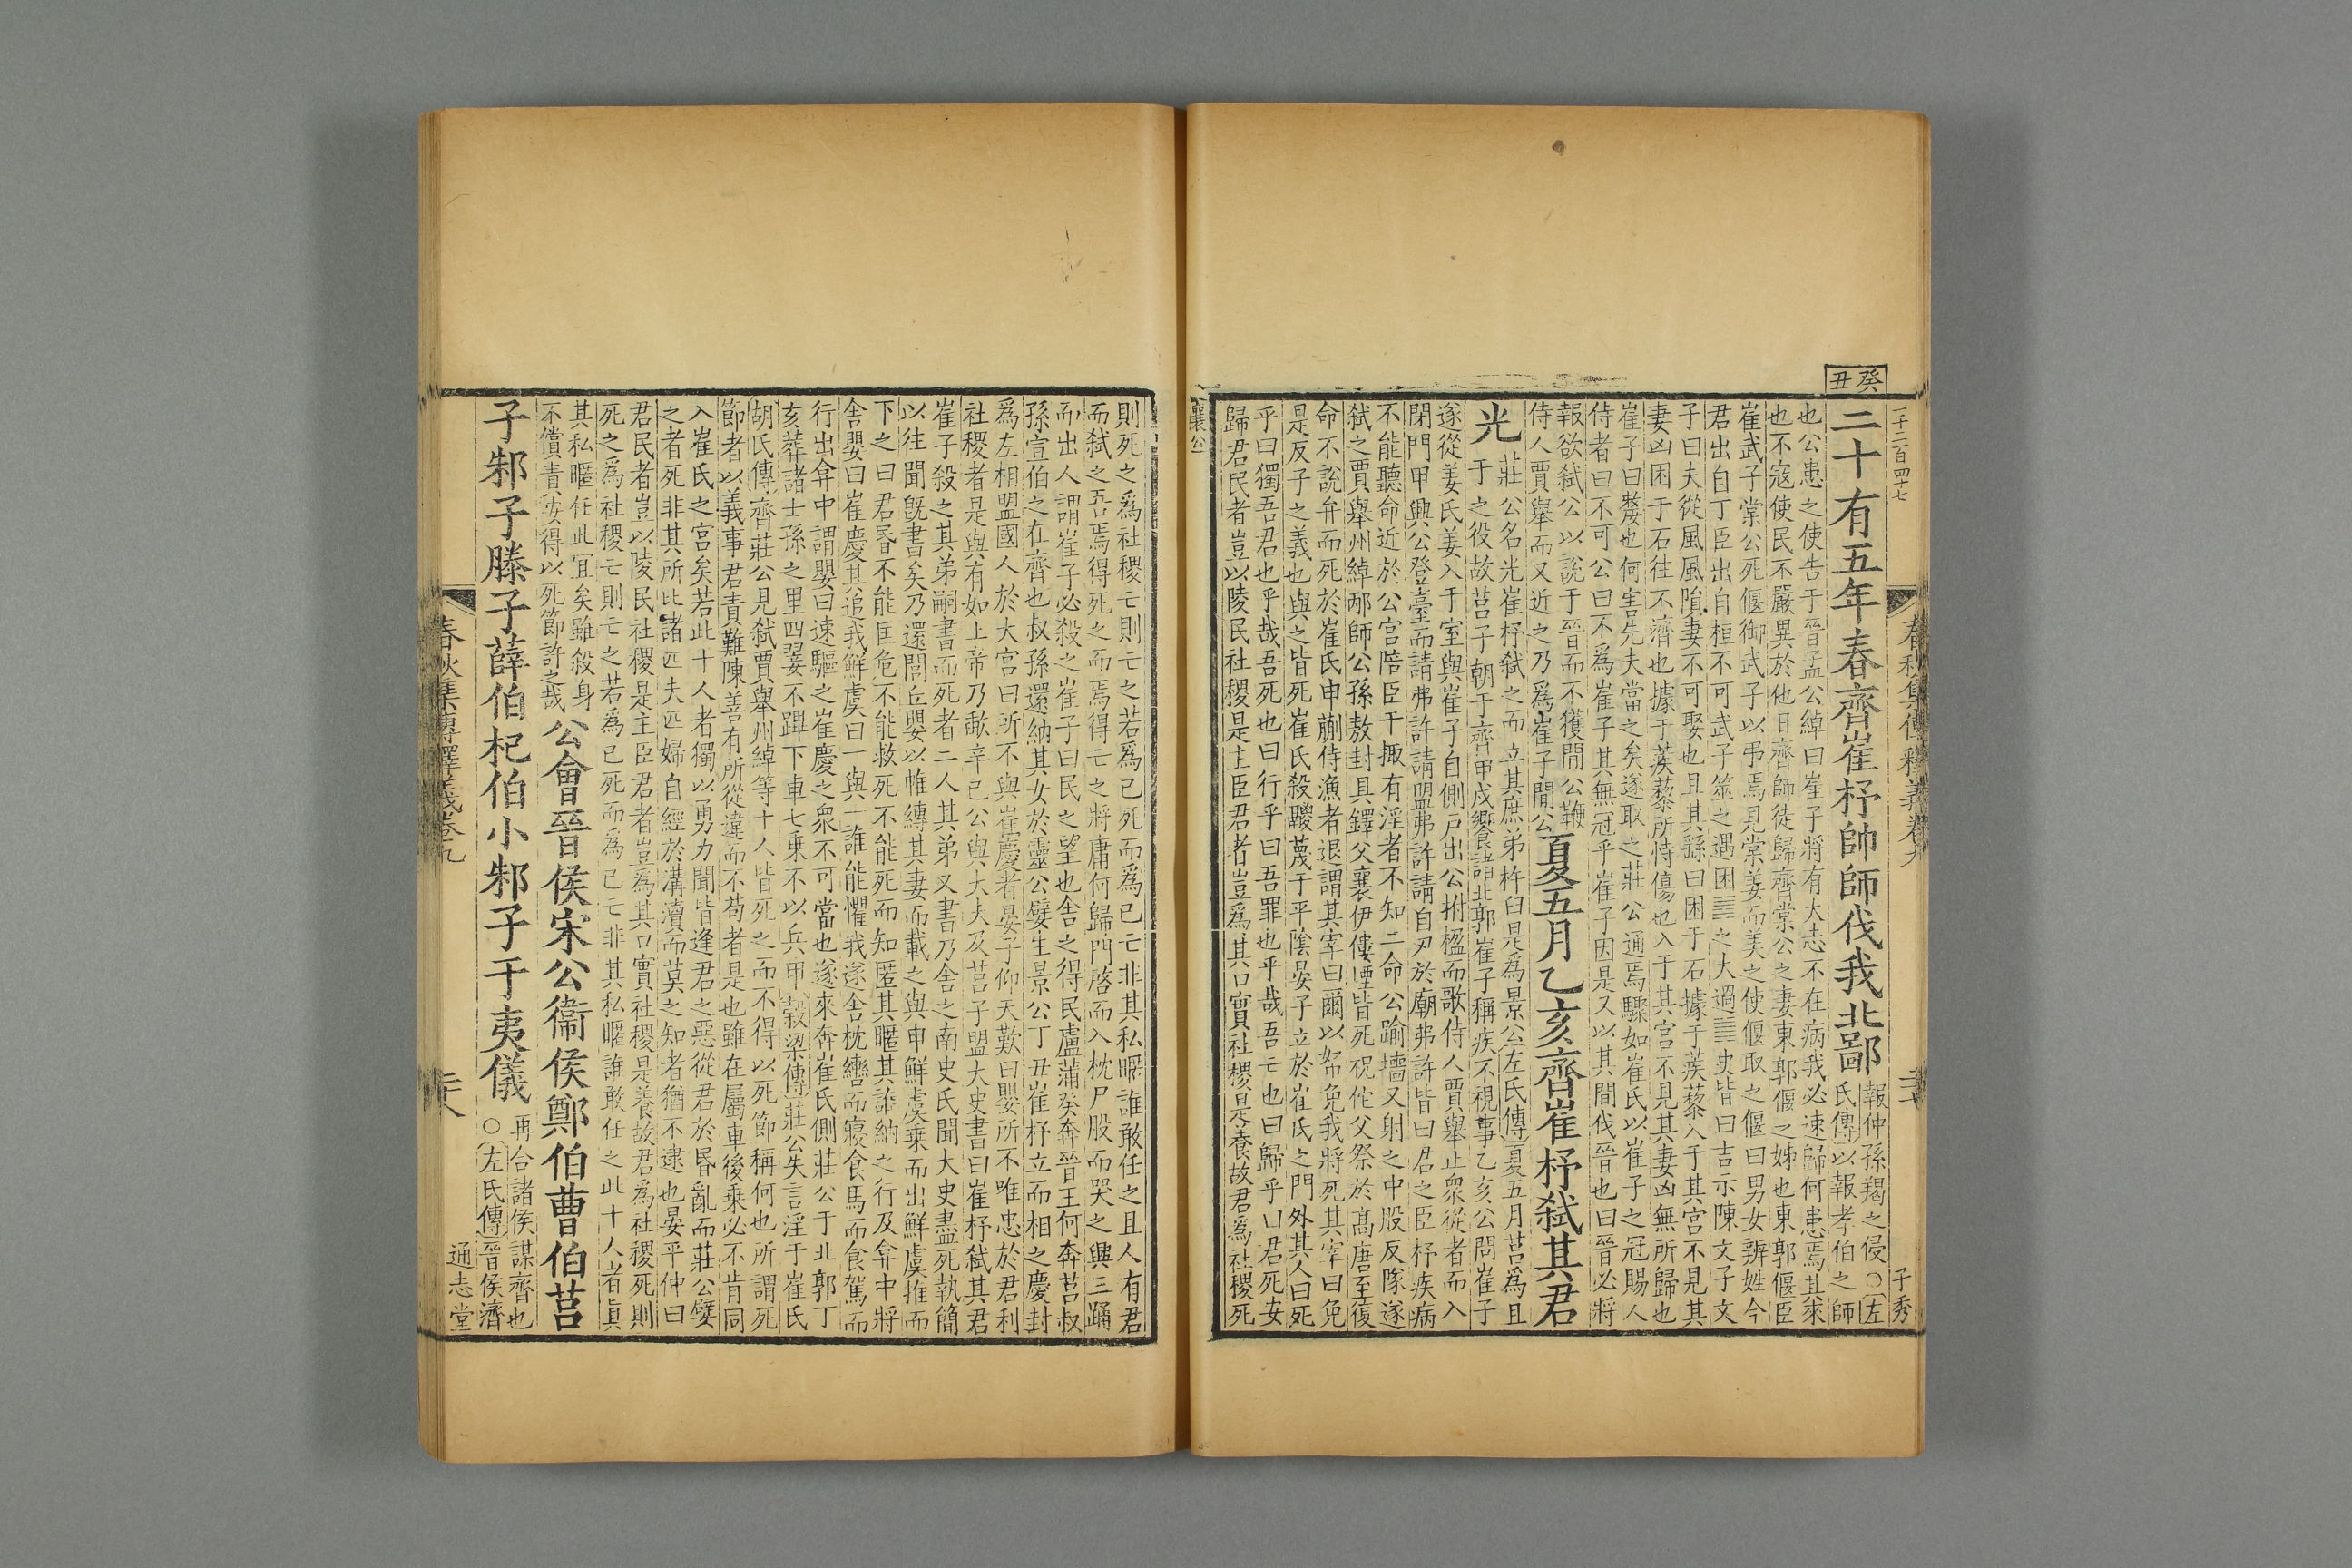 癸丑
一千二百四十七
春秋集傳釋義卷九
子秀
二十有五年春齊崔杼帥師伐我北鄙報仲孫羯之侵○左
氏傳以報孝伯之師
也公患之使告于晉孟公綽曰崔子將有大志不在病我必速歸何患焉其來
也不寇使民不嚴異於他日齊師徒歸齊棠公之妻東郭偃之姊也東郭偃臣
崔武子棠公死偃御武子以弔焉見棠姜而美之使偃取之偃曰男女辨姓今
君出自丁臣出自桓不可武子筮之遇困䷮之大過䷛史皆曰吉示陳文子文
子曰夫從風風隕妻不可娶也且其繇曰困于石據于蒺藜入于其宫不見其
妻凶困于石往不濟也據于蒺藜所恃傷也入于其宫不見其妻凶無所歸也
崔子曰嫠也何害先夫當之矣遂取之莊公通焉驟如崔氏以崔子之冠賜人
侍者曰不可公曰不爲崔子其無冠乎崔子因是又以其間伐晉也曰晉必將
報欲弑公以說于晉而不獲間公鞭
侍人賈舉而又近之乃爲崔子間公夏五月乙亥齊崔杼弑其君
光莊公名光崔杼弑之而立其庶弟杵臼是爲景公左氏傳夏五月莒爲且
于之役故莒子朝于齊甲戌饗諸北郭崔子稱疾不視事乙亥公問崔子
遂從姜氏姜入于室與崔子自側戶出公拊楹而歌侍人賈舉止衆從者而入
閉門甲興公登臺而請弗許請盟弗許請自刃於廟弗許皆曰君之臣杼疾病
不能聽命近於公宫陪臣干掫有淫者不知二命公踰墻又射之中股反隊遂
弑之賈舉州綽邴師公孫敖封具鐸父襄伊僂堙皆死祝佗父祭於高唐至復
命不說弁而死於崔氏申蒯侍漁者退謂其宰曰爾以帑免我將死其宰曰免
是反子之義也與之皆死崔氏殺鬷蔑于平陰晏子立於崔氏之門外其人曰死
乎曰獨吾君也乎哉吾死也曰行乎曰吾罪也乎哉吾亡也曰歸乎曰君死安
歸君民者豈以陵民社稷是主臣君者豈爲其口實社稷是養故君爲社稷死
襄公
則死之爲社稷亡則亡之若爲己死而爲己亡非其私暱誰敢任之且人有君
而弑之吾焉得死之而焉得亡之將庸何歸門啓而入枕尸股而哭之興三踊
而出人謂崔子必殺之崔子曰民之望也舍之得民盧蒲癸奔晉王何奔莒叔
孫宣伯之在齊也叔孫還納其女於靈公嬖生景公丁丑崔杼立而相之慶封
爲左相盟國人於大宫曰所不與崔慶者晏子仰天歎曰嬰所不唯忠於君利
社稷者是與有如上帝乃歃辛巳公與大夫及莒子盟大史書曰崔杼弑其君
崔子殺之其弟嗣書而死者二人其弟又書乃舍之南史氏聞大史盡死執簡
以往聞既書矣乃還閭丘嬰以帷縛其妻而載之與申鮮虞乘而出鮮虞推而
下之曰君昏不能匡危不能救死不能死而知匿其暱其誰納之行及弇中將
舍嬰曰崔慶其追我鮮虞曰一與一誰能懼我遂舍枕轡而寢食馬而食駕而
行出弇中謂嬰曰速驅之崔慶之衆不可當也遂來奔崔氏側莊公于北郭丁
亥葬諸士孫之里四翣不蹕下車七乘不以兵甲榖梁傳莊公失言淫于崔氏
胡氏傳齊莊公見弑賈舉州綽等十人皆死之而不得以死節稱何也所謂死
節者以義事君責難陳善有所從違而不苟者是也雖在屬車後乘必不肯同
入崔氏之宫矣若此十人者獨以勇力聞皆逢君之惡從君於昏亂而莊公嬖
之者死非其所比諸匹夫匹婦自經於溝瀆而莫之知者猶不逮也晏平仲曰
君民者豈以陵民社稷是主臣君者豈爲其口實社稷是養故君爲社稷死則
死之爲社稷亡則亡之若爲己死而爲己亡非其私暱誰敢任之此十人者眞
其私暱任此宜矣雖殺身
不償責安得以死節許之哉公會晉侯宋公衞侯鄭伯曹伯莒
子邾子滕子薛伯杞伯小邾子于夷儀再合諸侯謀齊也
○左氏傳晉侯濟
通志堂
春秋集傳釋義卷九